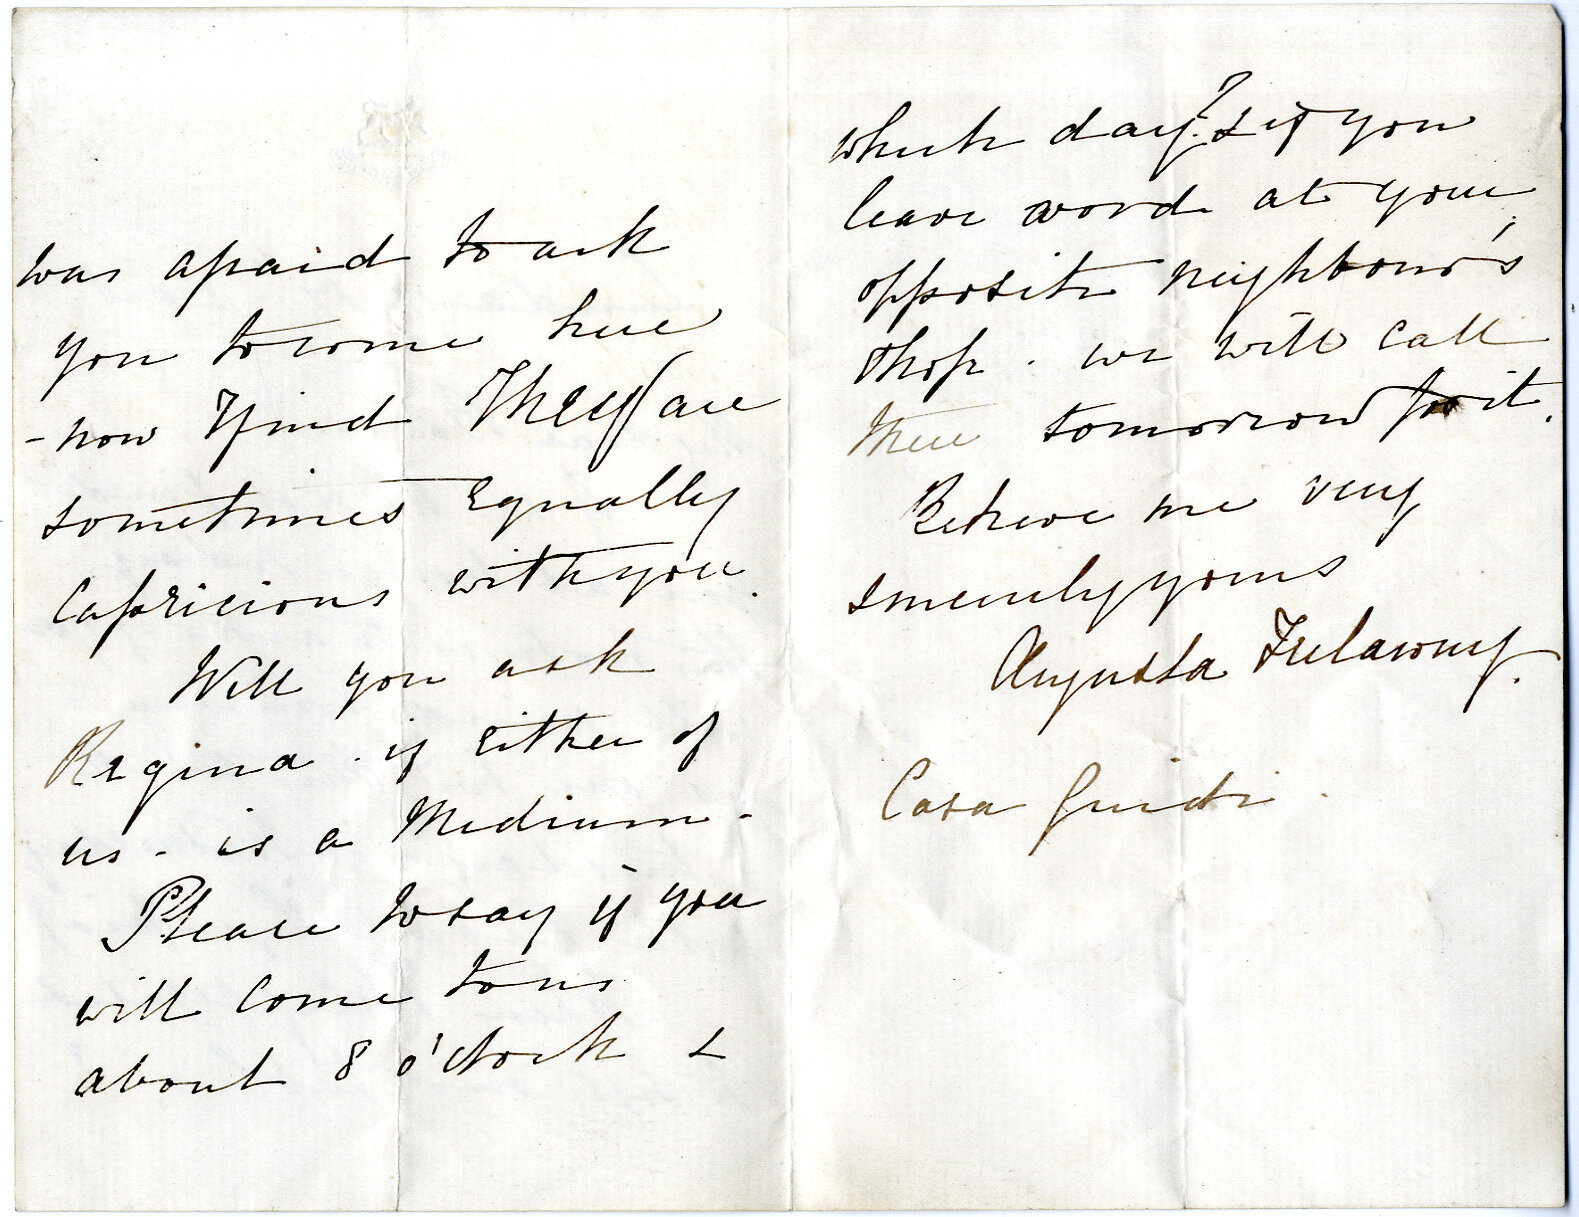 was afraid to ask
you to come here
- now I find They are
sometimes equally
capricious with you.
Will you ask
Regina . if either of
us - is a Medium -
Please to say if you
will come to us
about 8 o'clock &
which day? & if you
leave word at your
opposite neighbour's
shop . we will call
there tomorrow for it.
Believe me very
sincerely yours
Augusta Trelawny.
Casa Guidi .